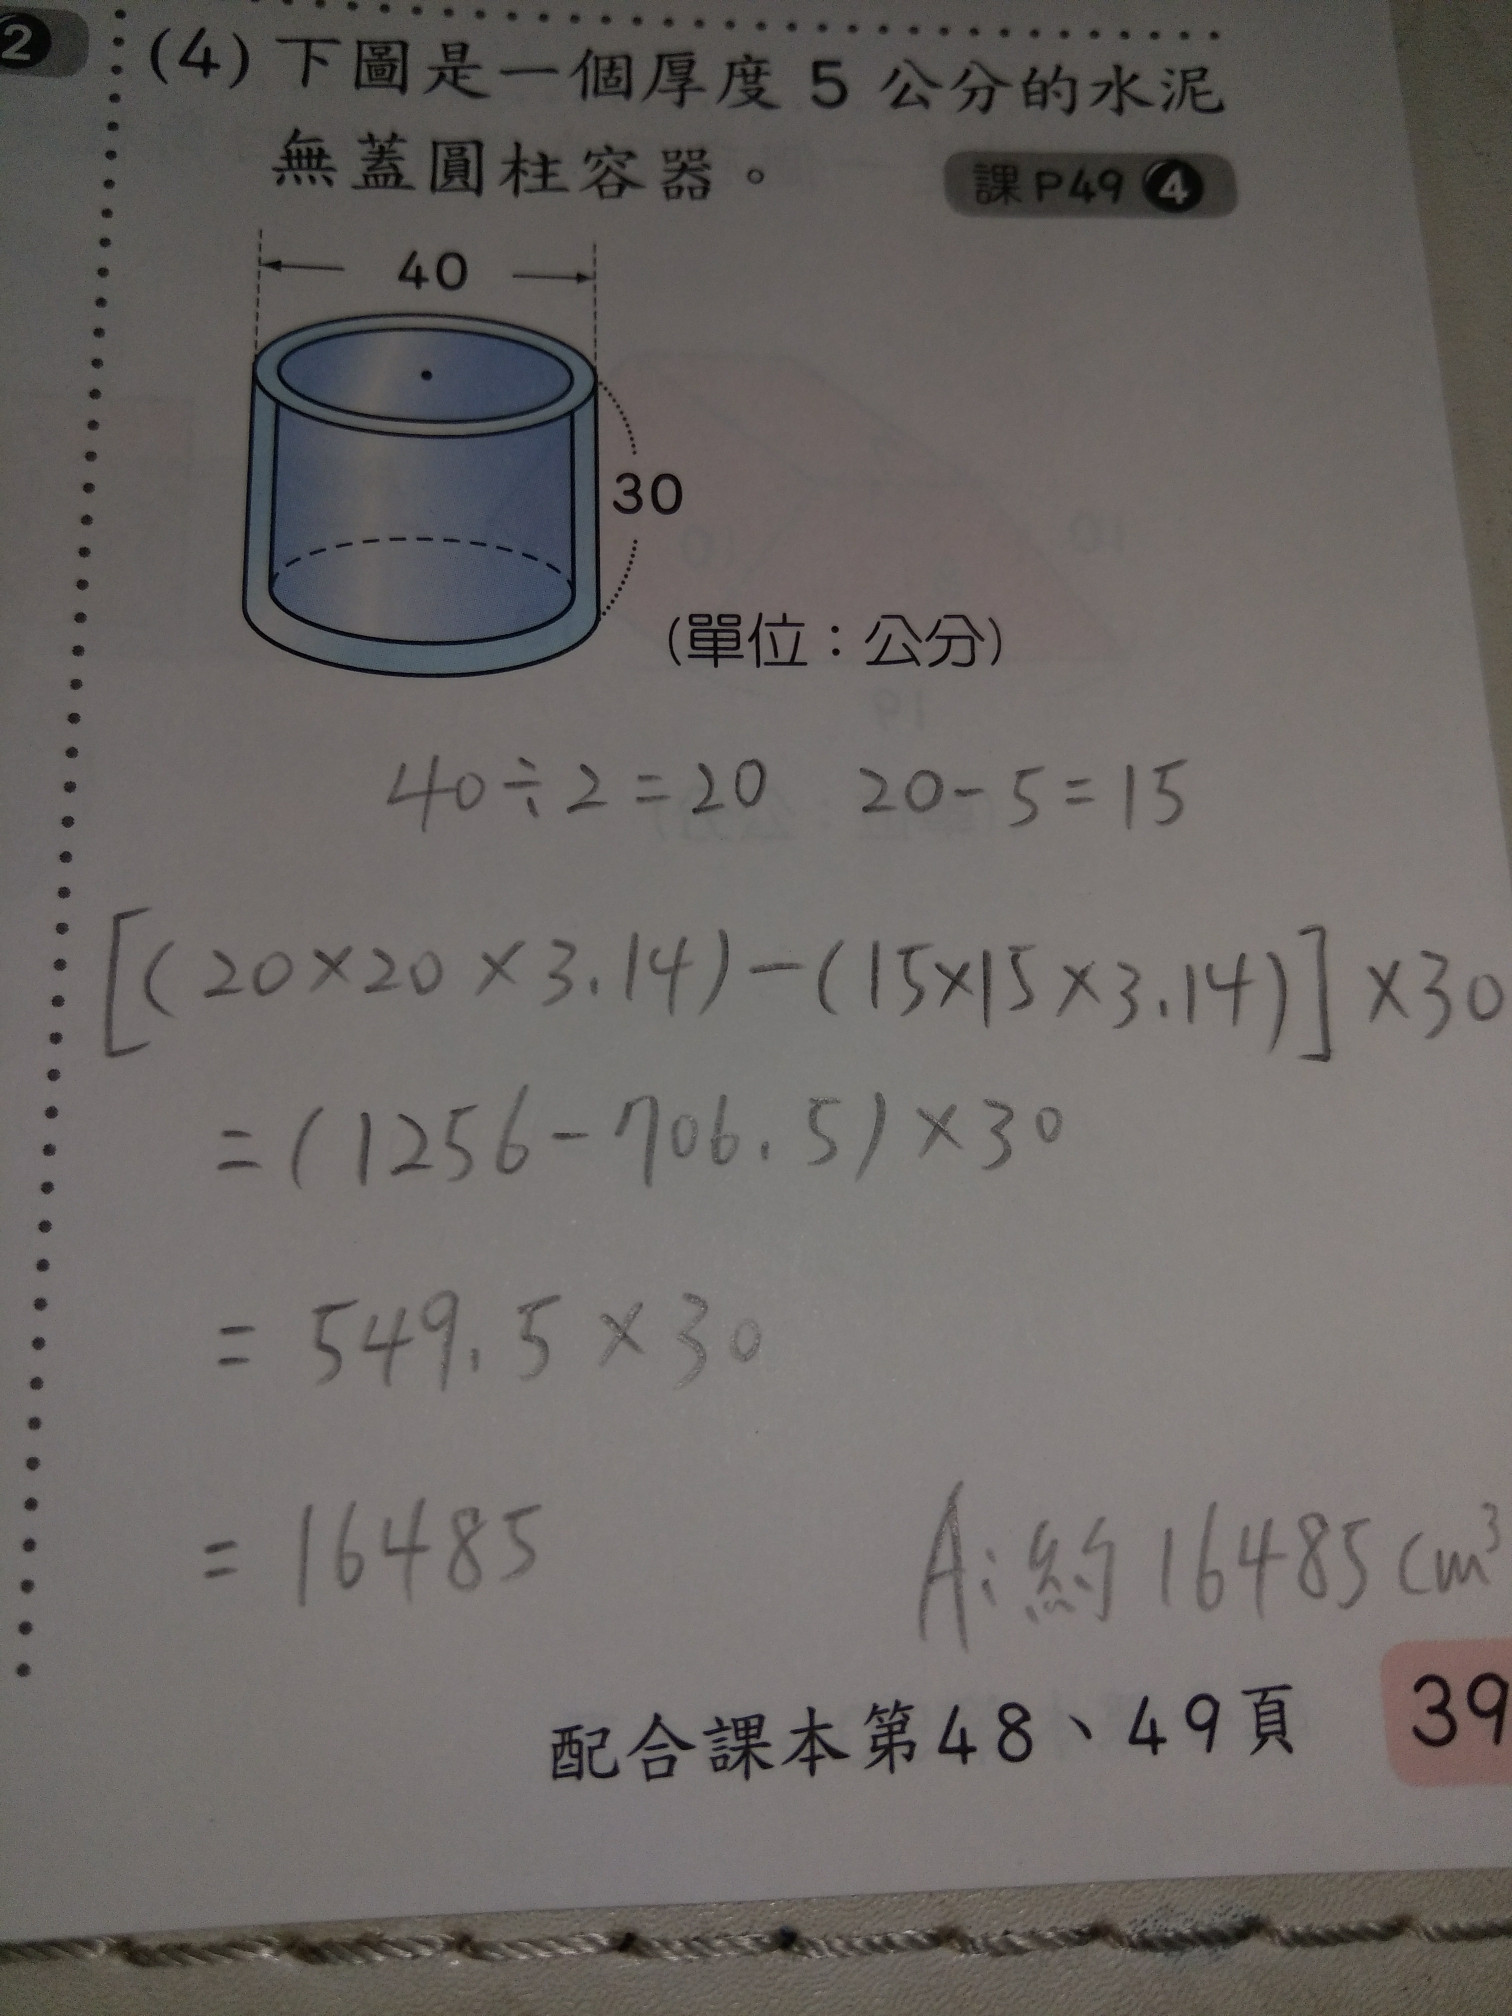 2 (4) 下圖是一個厚度 5 公分的水泥
無蓋圓柱容器。 課P49 4
40
30
(單位：公分)
40÷2=20 20-5=15
[(20×20×3.14)-(15×15×3.14)]×30
=(1256-706.5)×30
=549.5×30
=16485 A:約16485cm³
配合課本第48、49頁 39